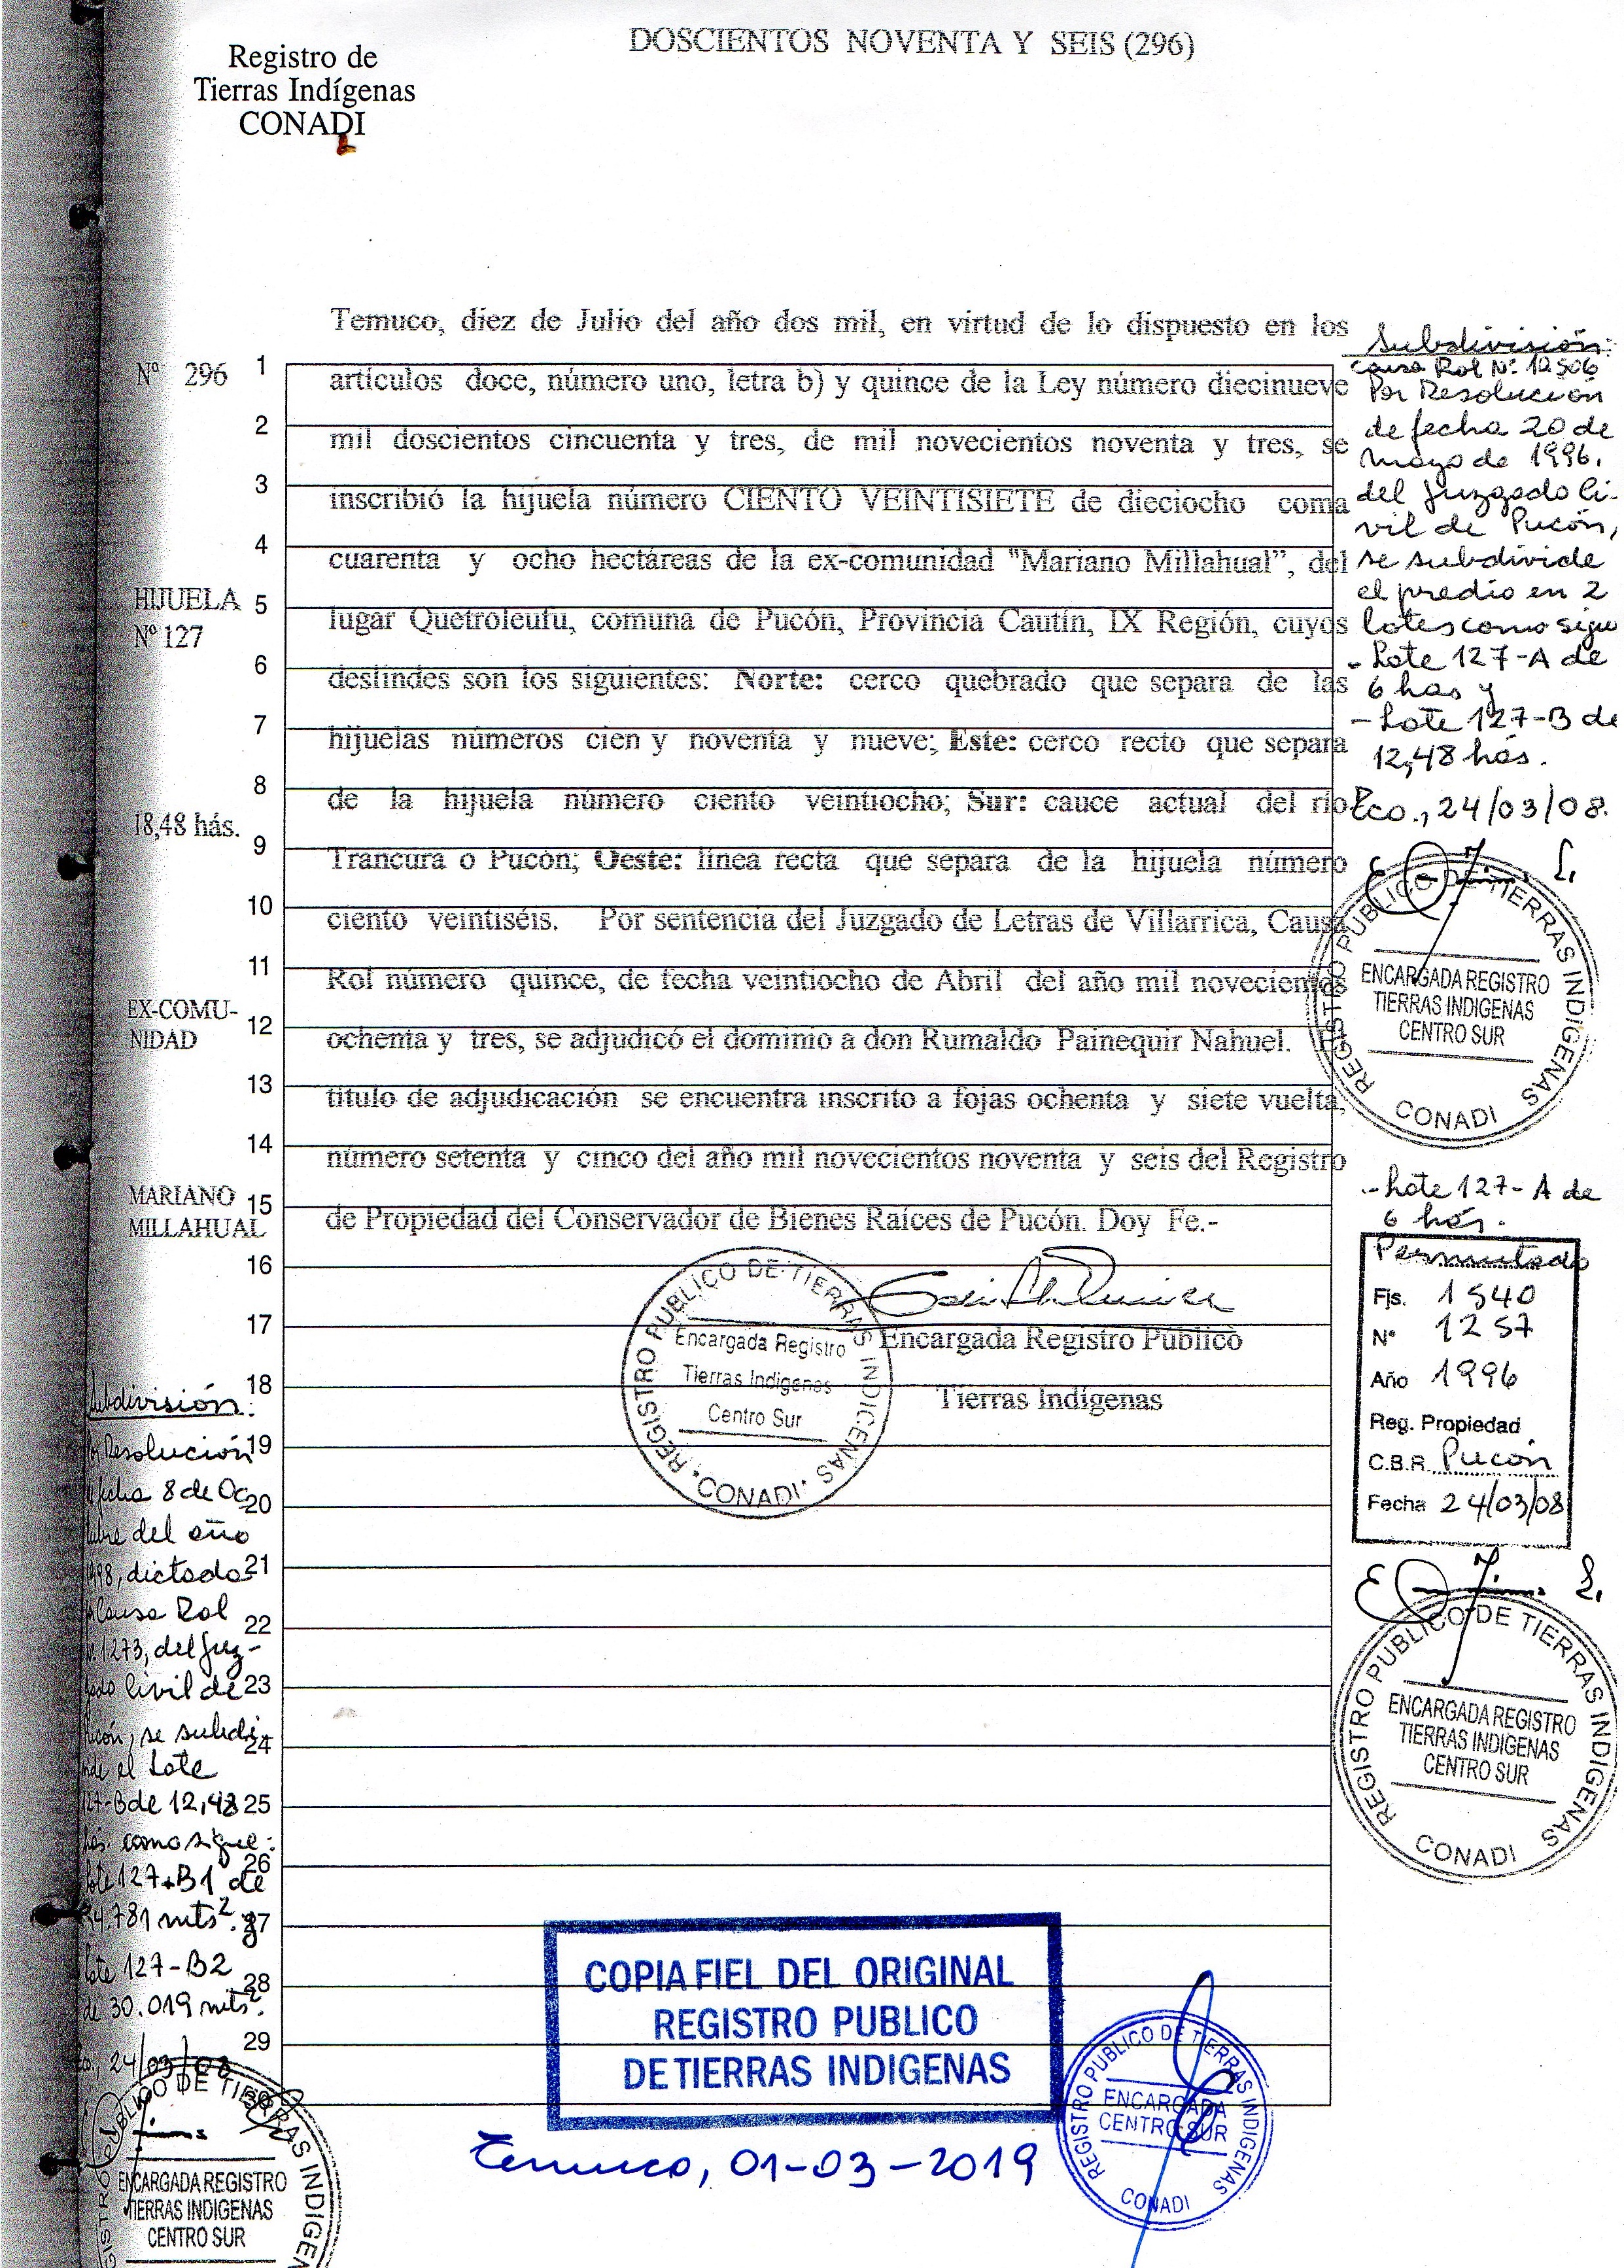 Registro de
Tierras Indígenas
CONADI
DOSCIENTOS NOVENTA Y SEIS (296)
Temuco, diez de Julio del año dos mil, en virtud de lo dispuesto en los
Nº 296
1
artículos doce, número uno, letra b) y quince de la Ley número diecinueve
2
mil doscientos cincuenta y tres, de mil novecientos noventa y tres, se
3
inscribió la hijuela número CIENTO VEINTISIETE de dieciocho coma
4
cuarenta y ocho hectáreas de la ex-comunidad "Mariano Millahual”, del
HIJUELA
Nº 127
5
lugar Quetroleufu, comuna de Pucón, Provincia Cautín, IX Región, cuyos
6
deslindes son los siguientes: Norte: cerco quebrado que separa de las
7
hijuelas números cien y noventa y nueve; Este: cerco recto que separa
8
de la hijuela número ciento veintiocho; Sur: cauce actual del río
18,48 hás.
9
Trancura o Pucón; Oeste: línea recta que separa de la hijuela número
10
ciento veintiséis. Por sentencia del Juzgado de Letras de Villarrica, Causa
11
Rol número quince, de fecha veintiocho de Abril del año mil novecientos
EX-COMU-
NIDAD
12
ochenta y tres, se adjudicó el dominio a don Rumaldo Painequir Nahuel.
13
título de adjudicación se encuentra inscrito a fojas ochenta y siete vuelta,
14
número setenta y cinco del año mil novecientos noventa y seis del Registro
MARIANO
MILLAHUAL
15
de Propiedad del Conservador de Bienes Raíces de Pucón. Doy Fe.-
16
17
Encargada Registro Público
18
Tierras Indígenas
REGISTRO PUBLICO DE TIERRAS INDIGENAS
Encargada Registro
Tierras Indigenas
Centro Sur
CONADI
19
20
21
22
23
24
25
26
27
28
29
30
Subdivisión:
causa Rol Nº 12506
Por Resolución
de fecha 20 de
mayo de 1996.
del Juzgado Ci-
vil de Pucón,
se subdivide
el predio en 2
lotes como sigue
- Lote 127-A de
6 has y
- Lote 127-B de
12,48 hás.
Tco., 24/03/08.
REGISTRO PUBLICO DE TIERRAS INDIGENAS
ENCARGADA REGISTRO
TIERRAS INDIGENAS
CENTRO SUR
CONADI
- Lote 127-A de
6 hás.
Permutado
Fjs. 1540
Nº 1257
Año 1996
Reg. Propiedad
C.B.R. Pucón
Fecha 24/03/08
REGISTRO PUBLICO DE TIERRAS INDIGENAS
ENCARGADA REGISTRO
TIERRAS INDIGENAS
CENTRO SUR
CONADI
Subdivisión:
Resolución
fecha 8 de Oc
tubre del año
1998, dictado
Causa Rol
1273, del Juz-
gado Civil de
Pucón, se subdi
vide el Lote
127-B de 12,48
hás. como sigue:
Lote 127-B1 de
4.781 mts². y
Lote 127-B2
de 30.019 mts².
24/03/08
PUBLICO DE TIERRAS INDIGEN
ENCARGADA REGISTRO
TIERRAS INDIGENAS
CENTRO SUR
COPIA FIEL DEL ORIGINAL
REGISTRO PUBLICO
DE TIERRAS INDIGENAS
REGISTRO PUBLICO DE TIERRAS INDIGENAS
ENCARGADA
CENTRO SUR
CONADI
Temuco, 01-03-2019